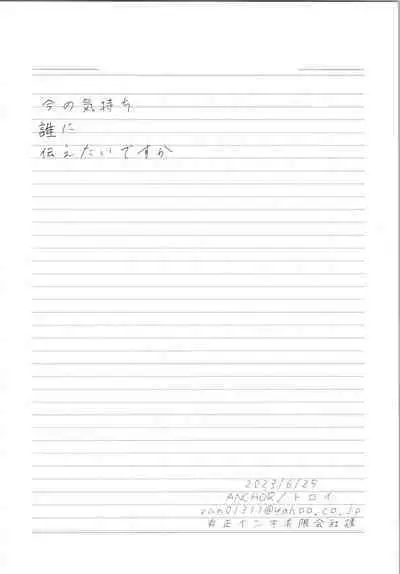 今の気持ち
誰に
伝えたいですか
2023/6/25
ANCHOR/トロイ
van01311@yahoo.co.jp
有正インキ有限会社様